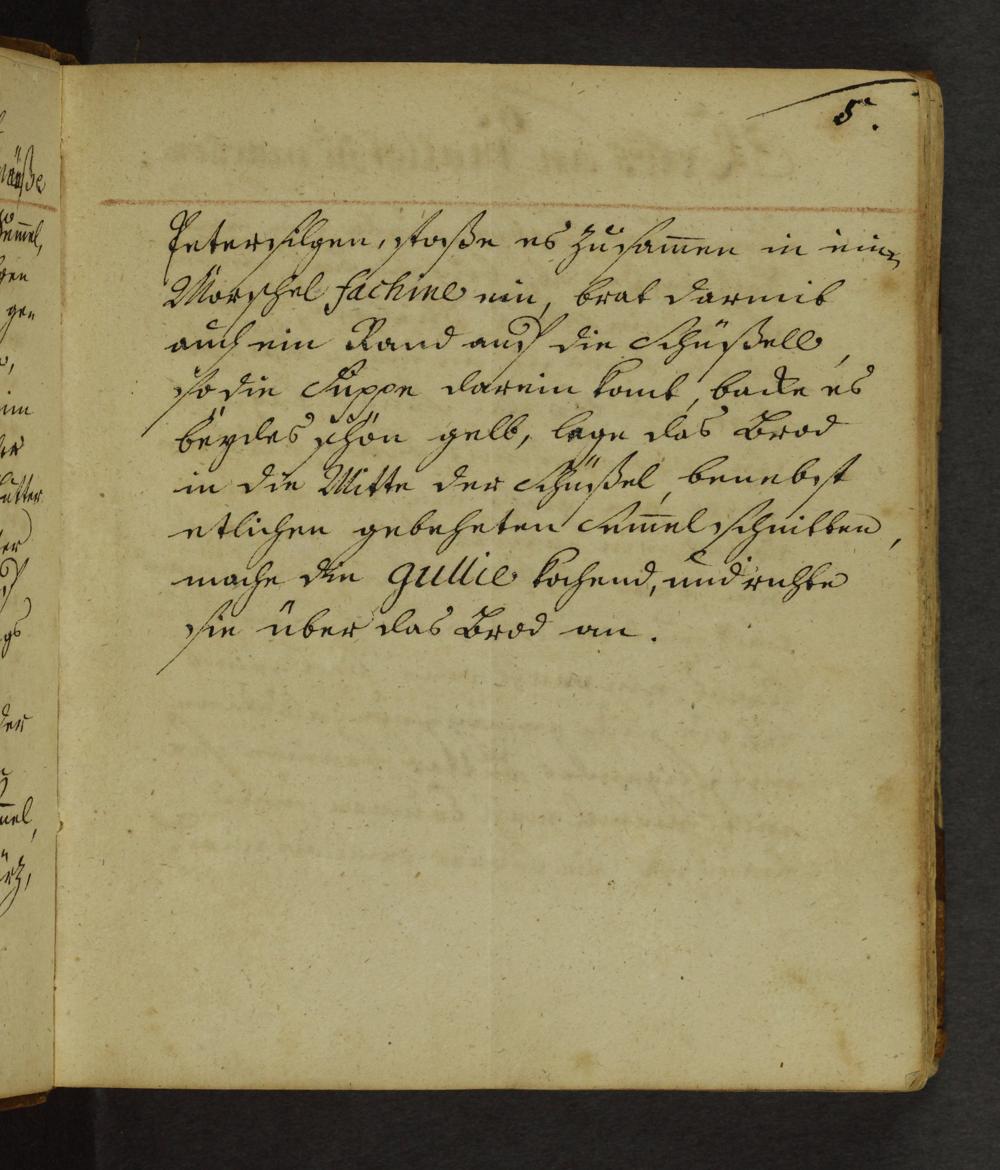 5.
Petersilgen, stoße es zusam̄en in ein
Mörschel fachine ein, brat darmit
auch ein Rand auf die Schüßell,
so die Suppe darein komt, backe es
beydes schön gelb, lege das Brod
in die Mitte der Schüßel, benebst
etlichen gebeheten Sem̄el schnitten,
mache die gullie kochend, und richte
sie über das Brod an.